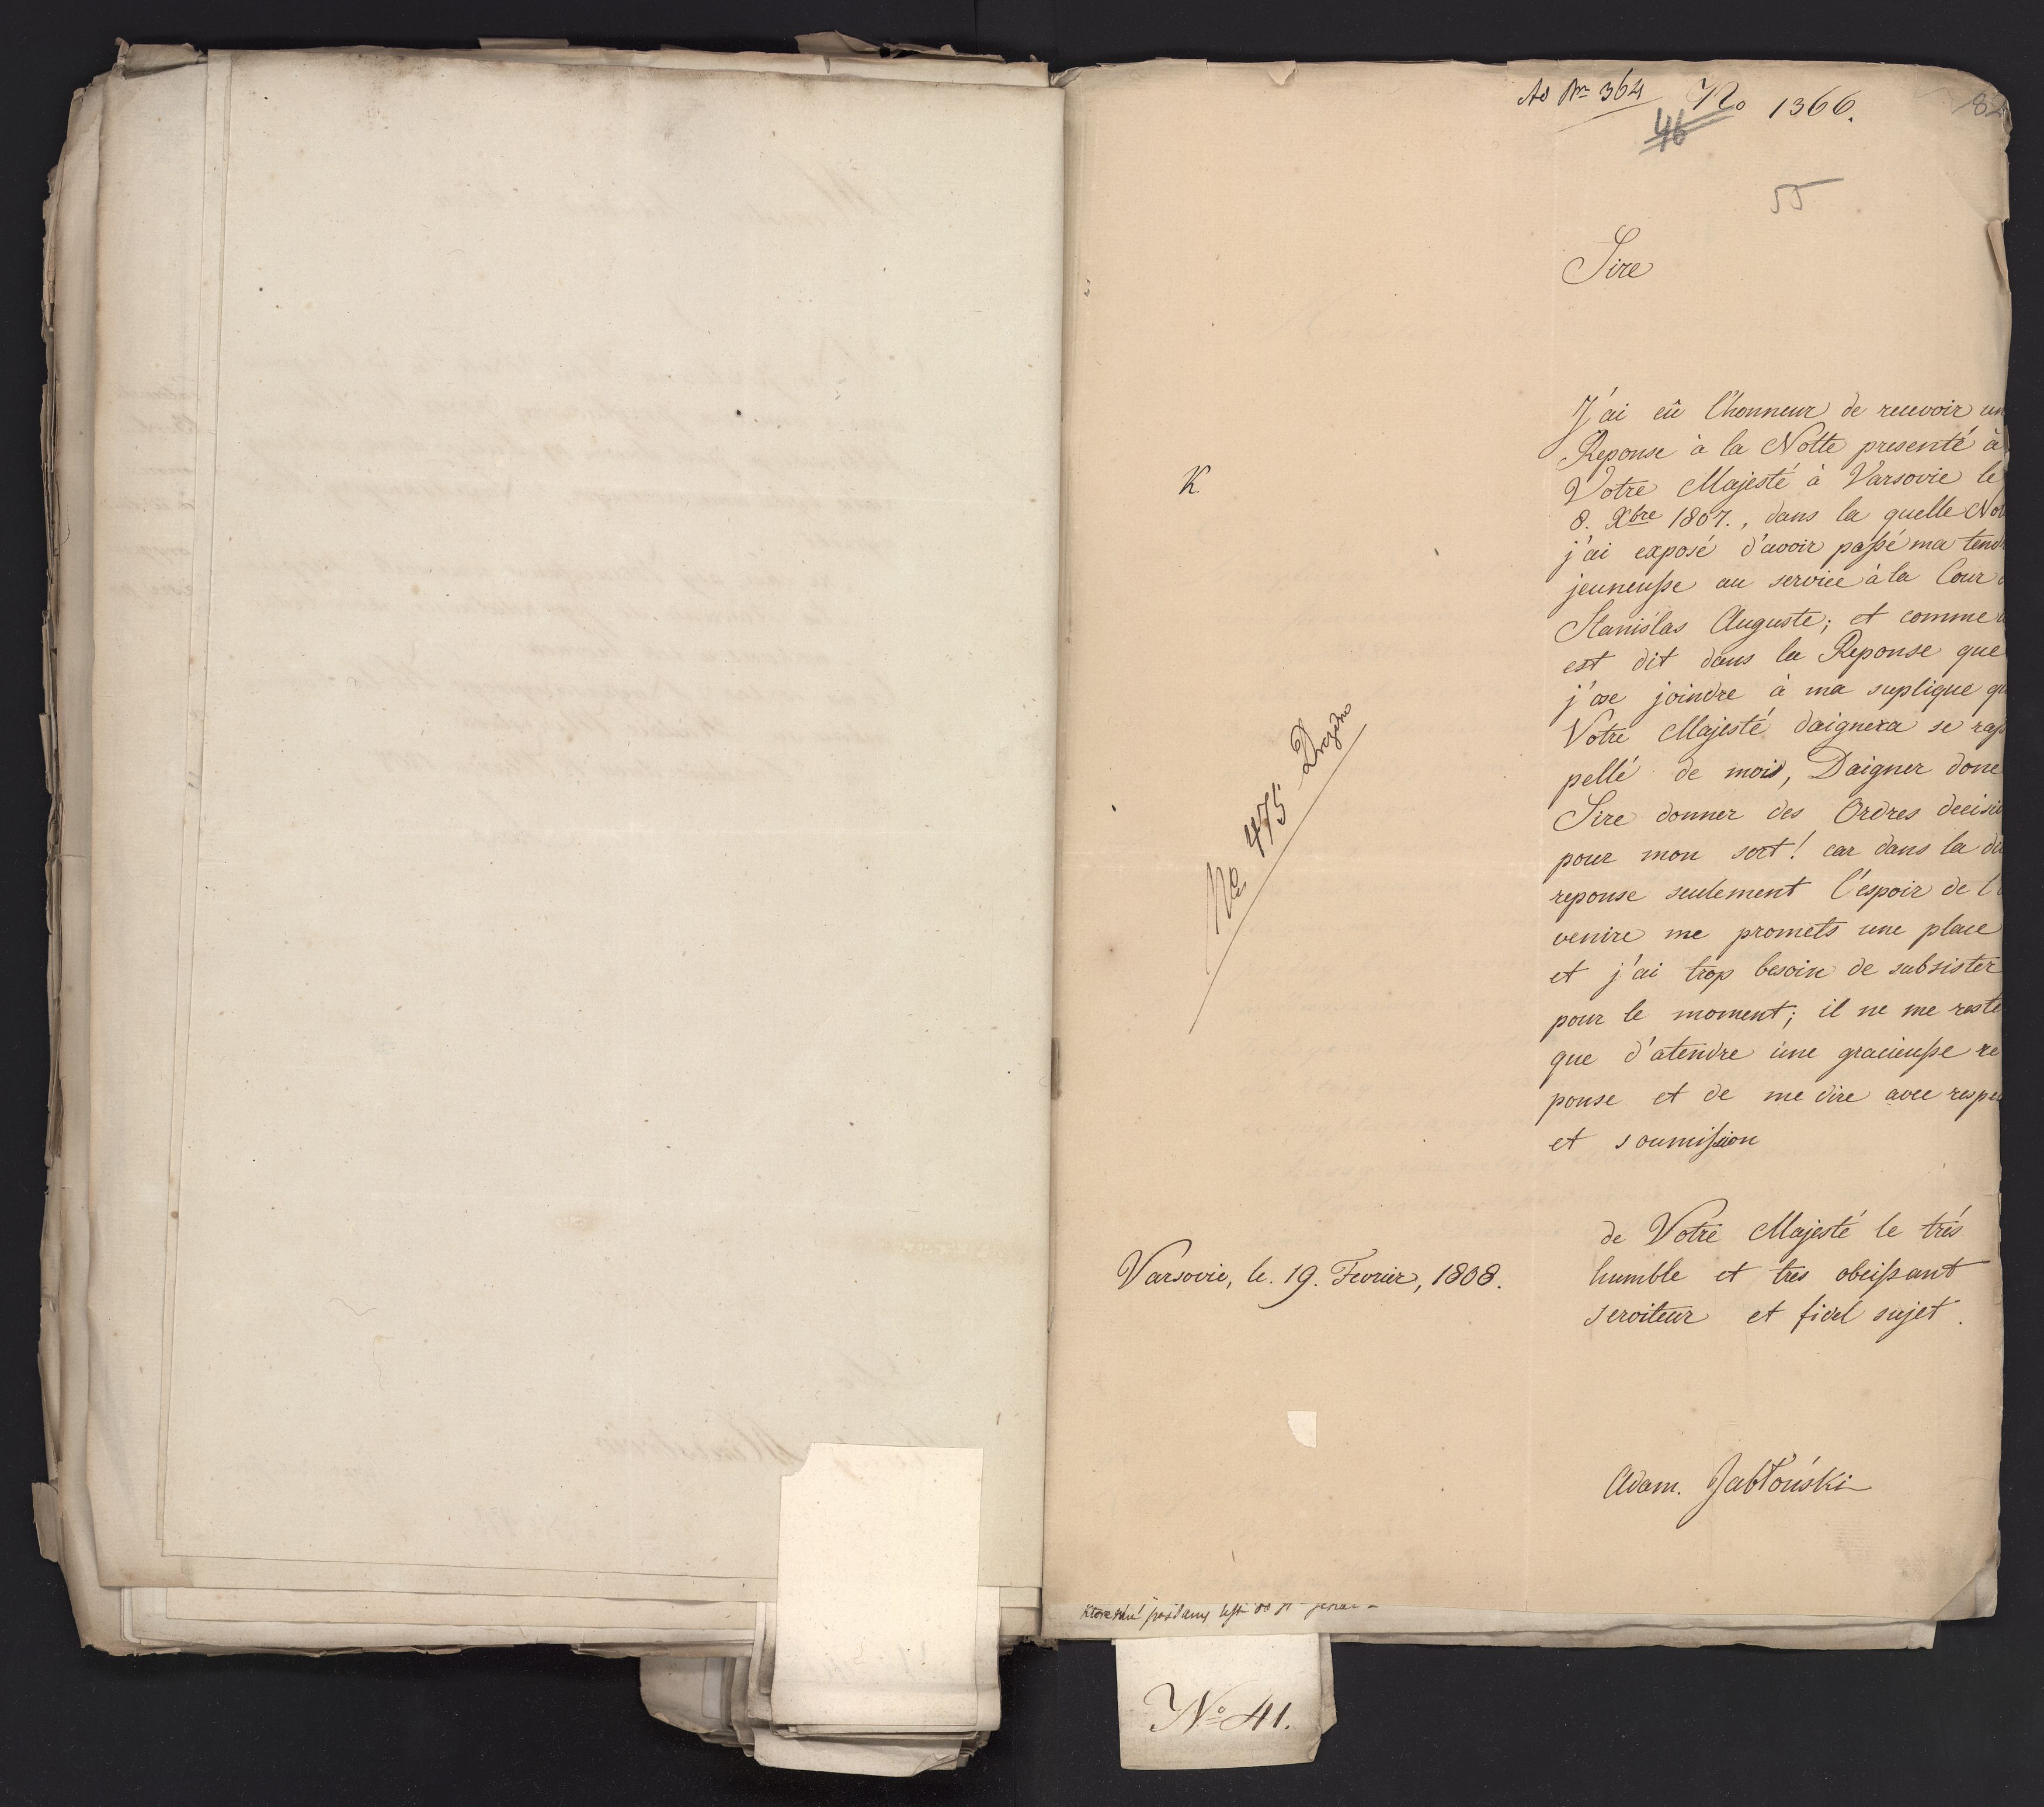 Ad Nro 364 No 1366.
46
55
Sire
J'ai eû l'honneur de recevoir un
Reponse à la Notte presenté à
Votre Majesté à Varsovie le
8. Xbre 1807., dans la quelle Not
j'ai exposé d'avoir passé ma tend
jeuneusse au service à la Cour
Stanislas Auguste; et comme
est dit dans la Reponse que
j'ose joindre à ma suplique qu
Votre Majesté daignera se rap
pellé de mois, Daigner donc
Sire donner des Ordres decisi
pour mon sort! car dans la di
reponse seulement l'espoir de l'
venire me promets une place
et j'ai trop besoin de subsister
pour le moment; il ne me reste
que d'atendre une gracieusse re
ponse et de me dire avec respe
et soumission
de Votre Majesté le trés
humble et tres obeissant
serviteur et fidel sujet.
Adam. Jabłoński
K.
No 475 Drezdno
Varsovie, le. 19. Fevrier, 1808.
No 41.